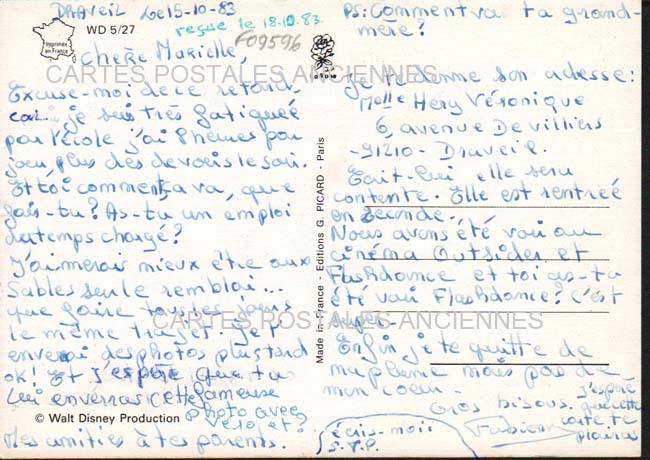 DRAVEIL Le 15-10-83
reçue le 18.10.83
F09596
Imprimée en France
WD 5/27
Chère Marielle,
CARTES POSTALES ANCIENNES
Excuse-moi de ce retard
car je suis très fatiguée
par l'école j'ai 8 heures par
jour, plus des devoirs le soir.
Et toi comment ça va, que
fais-tu? As-tu un emploi
du temps chargé?
J'aimerai mieux être aux
Sables sur le remblai...
que faire tous les jours
le même trajet. Je t'
enverai des photos plus tard
ok! Et j'espère que tu
lui enverras cette fameuse
photo avec
Véro et?
© Walt Disney Production
Mes amitiés à tes parents.
Made in France - Editions G. PICARD - Paris
PS: Comment va ta grand-
mère?
Je te donne son adresse:
Melle Hery Véronique
6, avenue De villiers
-91210- Draveil.
Ecrit-lui elle sera
contente. Elle est rentrée
en seconde.
Nous avons été voir au
cinéma Outsider et
Flashdance et toi as-tu
été voir Flashdance? C'est
super.
CARTES POSTALES ANCIENNES
Enfin je te quitte de
ma plume mais pas de
mon coeur.
Gros bisous.
Fabien
j'espère
que cette
carte te
plaira
écris-moi
S.T.P.